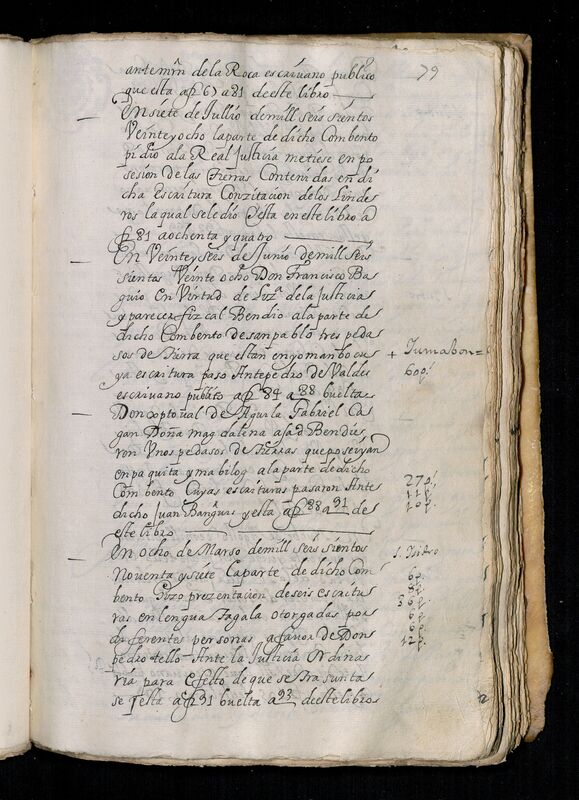 79
antemi Mrn de la Roca escrivano publico
que esta a fs 67 a 81 deeste libro
En siete de Jullio de mill seis sientos
Veinte y ocho la parte de dicho Combento
pidio a la Real Justicia metiese en po
sesion de las Tierras Contenidas en di
cha Escritura Con zitacion de los Linde
ros la qual se le dio y esta en este libro a
fs 81 a ochenta y quatro
En Veinte y seis de Junio de mill seis
sientos Veinte ocho Don Francisco Ba
guio En Virtud de Liza de la Justicia
y parecer fizcal Bendio a la parte de
dicho Combento de san pablo tres peda
sos de Tierra que estan en yoman bo cu
ya escritura paso Ante pedro de Valdes
escrivano publico a fs 84 a 88 buelta
+ Tumabon =
60 ps
Don xptoual de Aguila Gabriel Ca
gan Doña magdalena asad Bendie
ron Unos pedasos de Tierras que poseiyan
en paquita y mabilog a la parte de dicho
Combento Cuyas escrituras pasaron Ante
dicho Juan Banguis y esta a fs 88 a 91 de
este libro
270
11 p.
10 p.
En ocho de Marso de mill seis sientos
Noventa y siete La parte de dicho Com
bento hizo prezentacion de seis escritu
ras en lengua Tagala otorgadas por
diferentes personas a favor de Don
pedro tello Ante la Justicia Ordina
ria para Efecto de que se tradunta
se y esta a fs 91 buelta a 93 deeste libro
S. Isidro
6 p.
8 p.
36 p.
6 p.
6 p.
12 p.